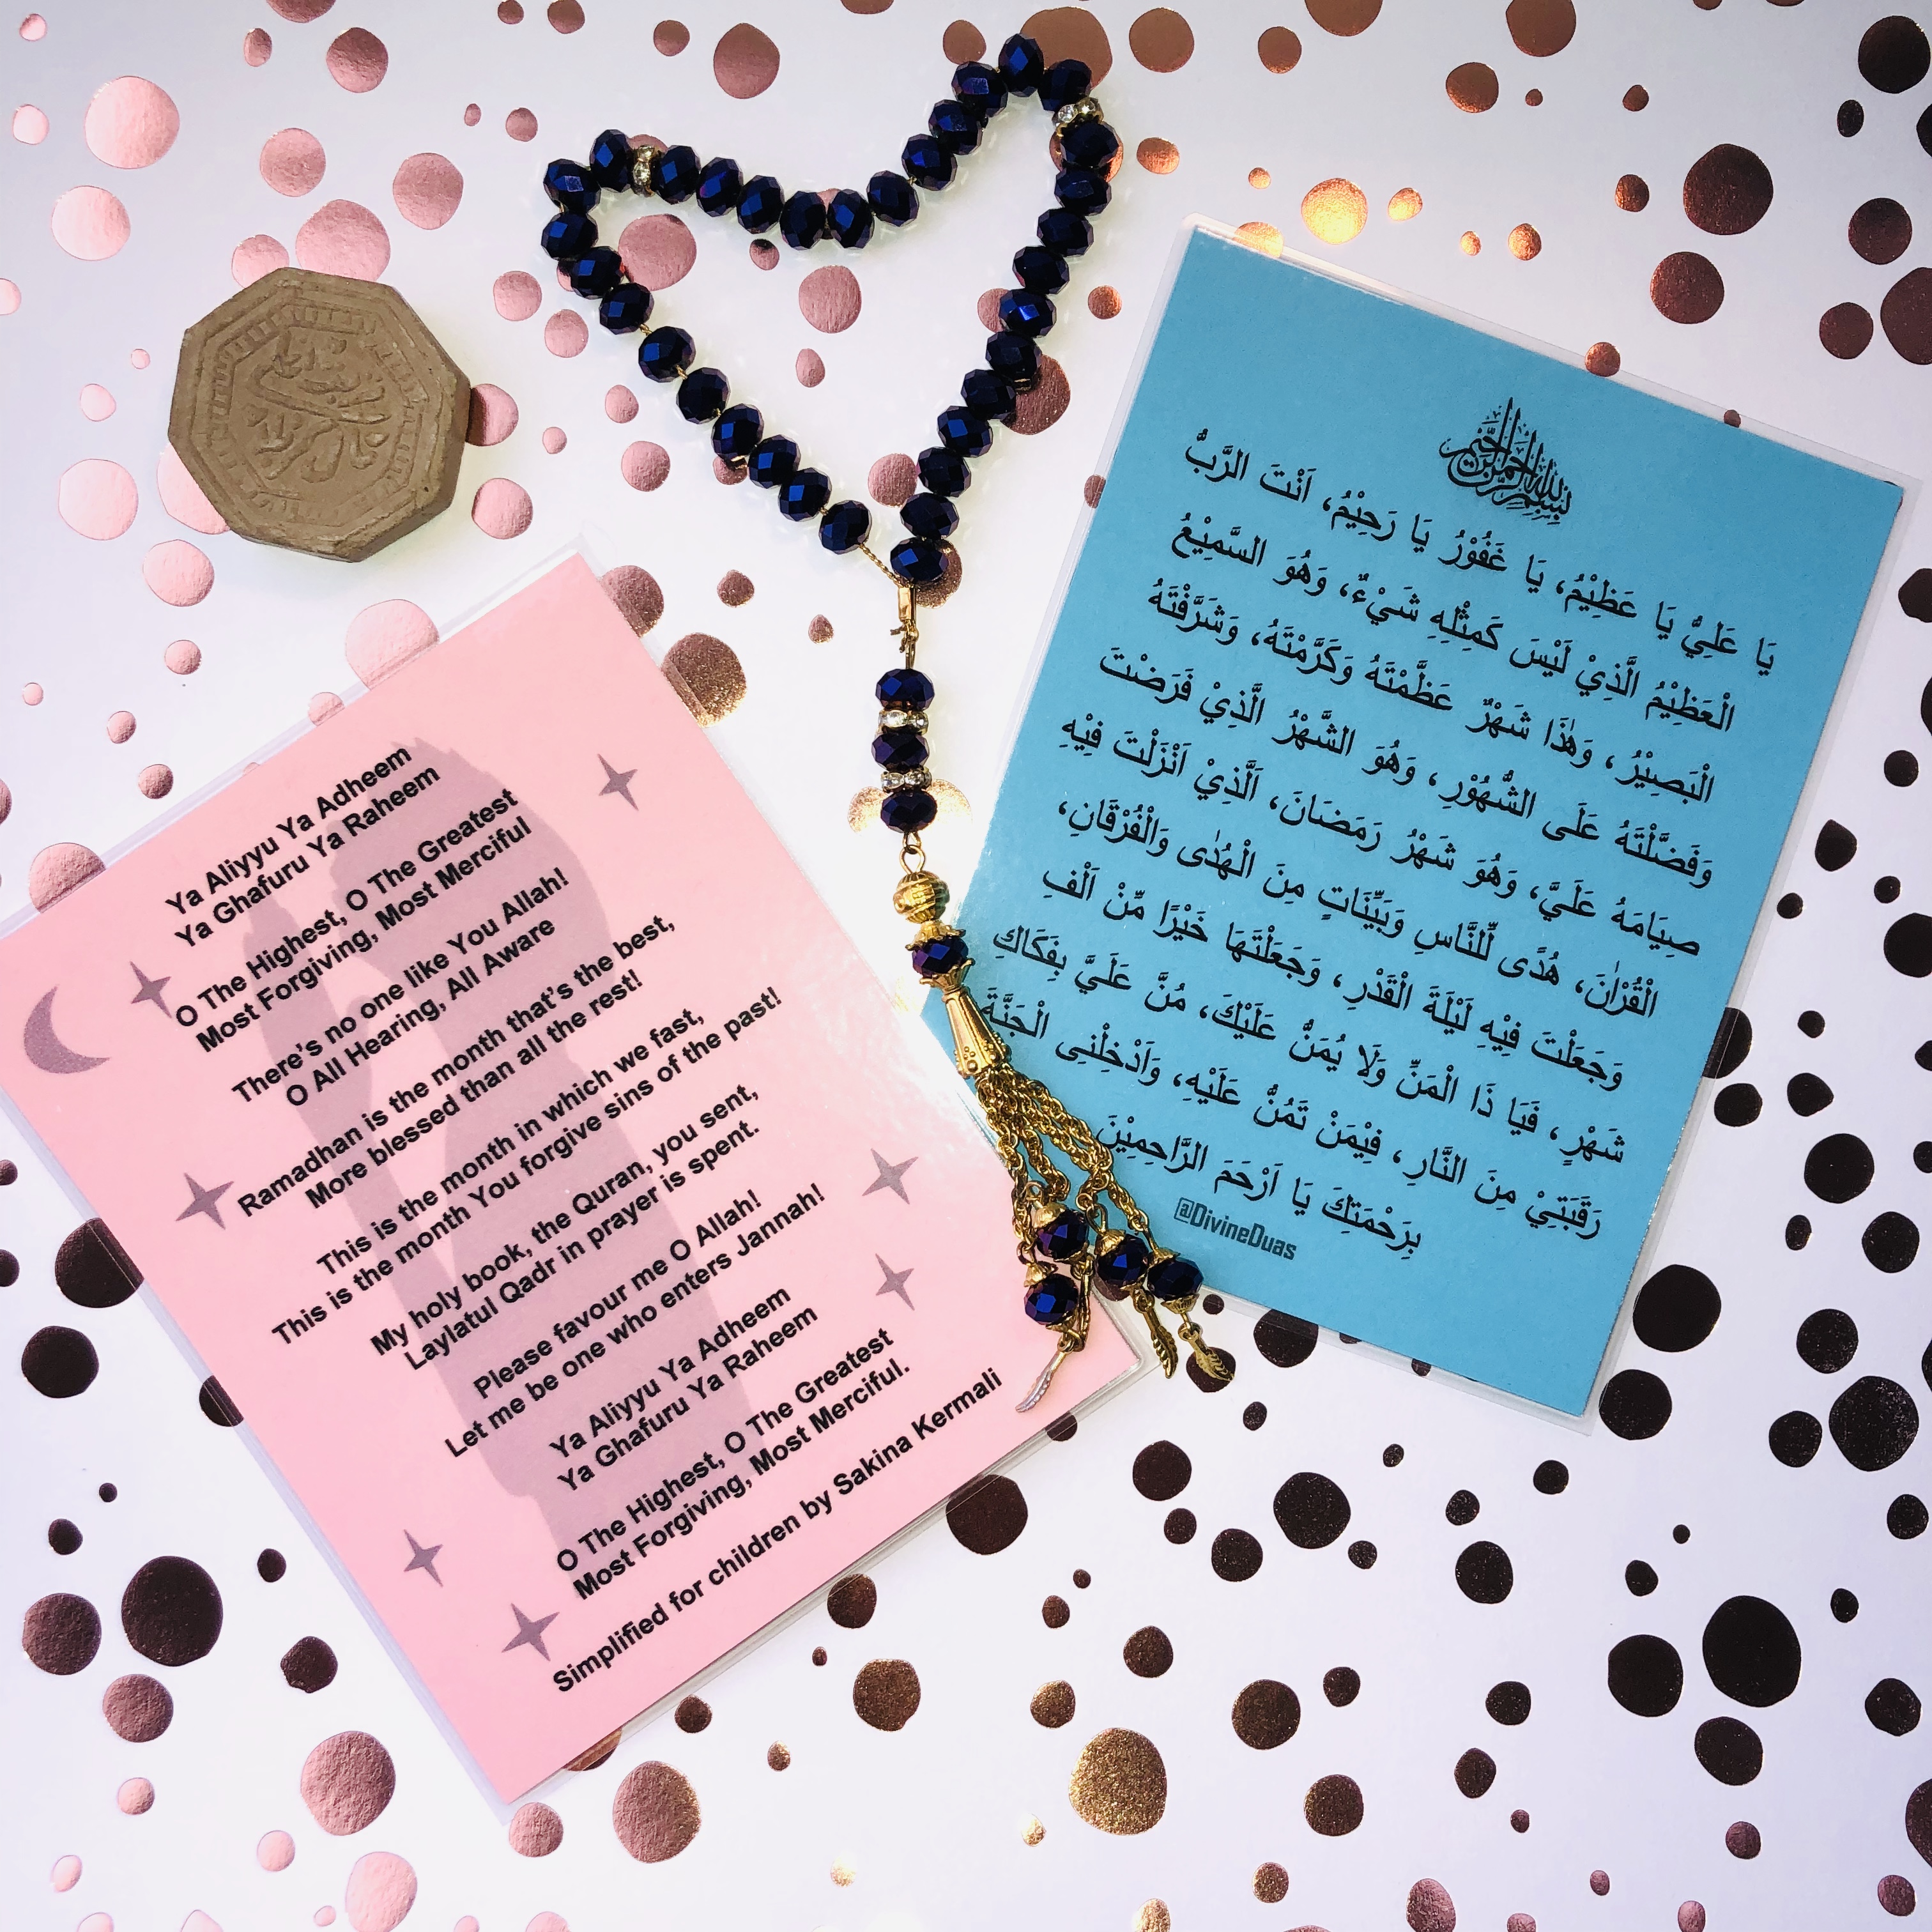 Ya Aliyyu Ya Adheem
Ya Ghafuru Ya Raheem
O The Highest, O The Greatest
Most Forgiving, Most Merciful
There's no one like You Allah!
O All Hearing, All Aware
Ramadhan is the month that's the best,
More blessed than all the rest!
This is the month in which we fast,
This is the month You forgive sins of the past!
My holy book, the Quran, you sent,
Laylatul Qadr in prayer is spent.
Please favour me O Allah!
Let me be one who enters Jannah!
Ya Aliyyu Ya Adheem
Ya Ghafuru Ya Raheem
O The Highest, O The Greatest
Most Forgiving, Most Merciful.
Simplified for children by Sakina Kermali
بِسْمِ اللهِ الرَّحْمٰنِ الرَّحِيْمِ
يَا عَلِيُّ يَا عَظِيْمُ، يَا غَفُوْرُ يَا رَحِيْمُ، اَنْتَ الرَّبُّ
الْعَظِيْمُ الَّذِيْ لَيْسَ كَمِثْلِهِ شَيْءٌ، وَهُوَ السَّمِيْعُ
الْبَصِيْرُ، وَهٰذَا شَهْرٌ عَظَّمْتَهُ وَكَرَّمْتَهُ، وَشَرَّفْتَهُ
وَفَضَّلْتَهُ عَلَى الشُّهُوْرِ، وَهُوَ الشَّهْرُ الَّذِيْ فَرَضْتَ
صِيَامَهُ عَلَيَّ، وَهُوَ شَهْرُ رَمَضَانَ، اَلَّذِيْ اَنْزَلْتَ فِيْهِ
الْقُرْاٰنَ، هُدًى لِّلنَّاسِ وَبَيِّنَاتٍ مِنَ الْهُدٰى وَالْفُرْقَانِ،
وَجَعَلْتَ فِيْهِ لَيْلَةَ الْقَدْرِ، وَجَعَلْتَهَا خَيْرًا مِّنْ اَلْفِ
شَهْرٍ، فَيَا ذَا الْمَنِّ وَلَا يُمَنُّ عَلَيْكَ، مُنَّ عَلَيَّ بِفَكَاكِ
رَقَبَتِيْ مِنَ النَّارِ، فِيْمَنْ تَمُنُّ عَلَيْهِ، وَاَدْخِلْنِى الْجَنَّةَ
بِرَحْمَتِكَ يَا اَرْحَمَ الرَّاحِمِيْنَ
@DivineDuas